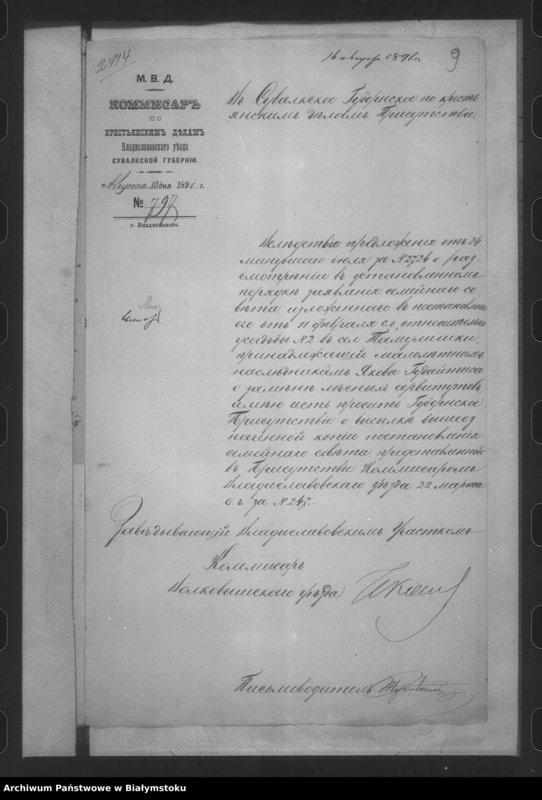 2474
16 августа 1891 г.
9
М. В. Д.
КОММИСАРЪ
ПО
КРЕСТЬЯНСКИМЪ ДѢЛАМЪ
Владиславовскаго уѣзда
СУВАЛКСКОЙ ГУБЕРНІИ.
Августа 10 дня 1891 г.
№ 797
г. Владиславовъ.
Въ Сувалкское Губернское по кресть
янскимъ дѣламъ Присутствіе
Вслѣдствіе предложенія отъ 24
минувшаго іюля за №2724 о раз
смотрѣніи въ установленномъ
порядкѣ заявленія семейнаго со
вѣта изложеннаго въ постановле
отъ 11 февраля с.г. относительно
усадьбы №2 въ сел.
принадлежащей малолѣтнимъ
наслѣдникамъ Якова
о замѣнѣ лѣсныхъ сервитутовъ,
имѣю честь просить Губернское
Присутствіе о высылкѣ вышеоз
наченной копіи постановленія
семейнаго совѣта представленной
въ Присутствіе Коммисаромъ
Владиславовскаго уѣзда 22 марта
с. г. за №245.
Завѣдывающій Владиславовскимъ Участкомъ
Коммисаръ
Волковышскаго уѣзда
Письмоводитель
Archiwum Państwowe w Białymstoku